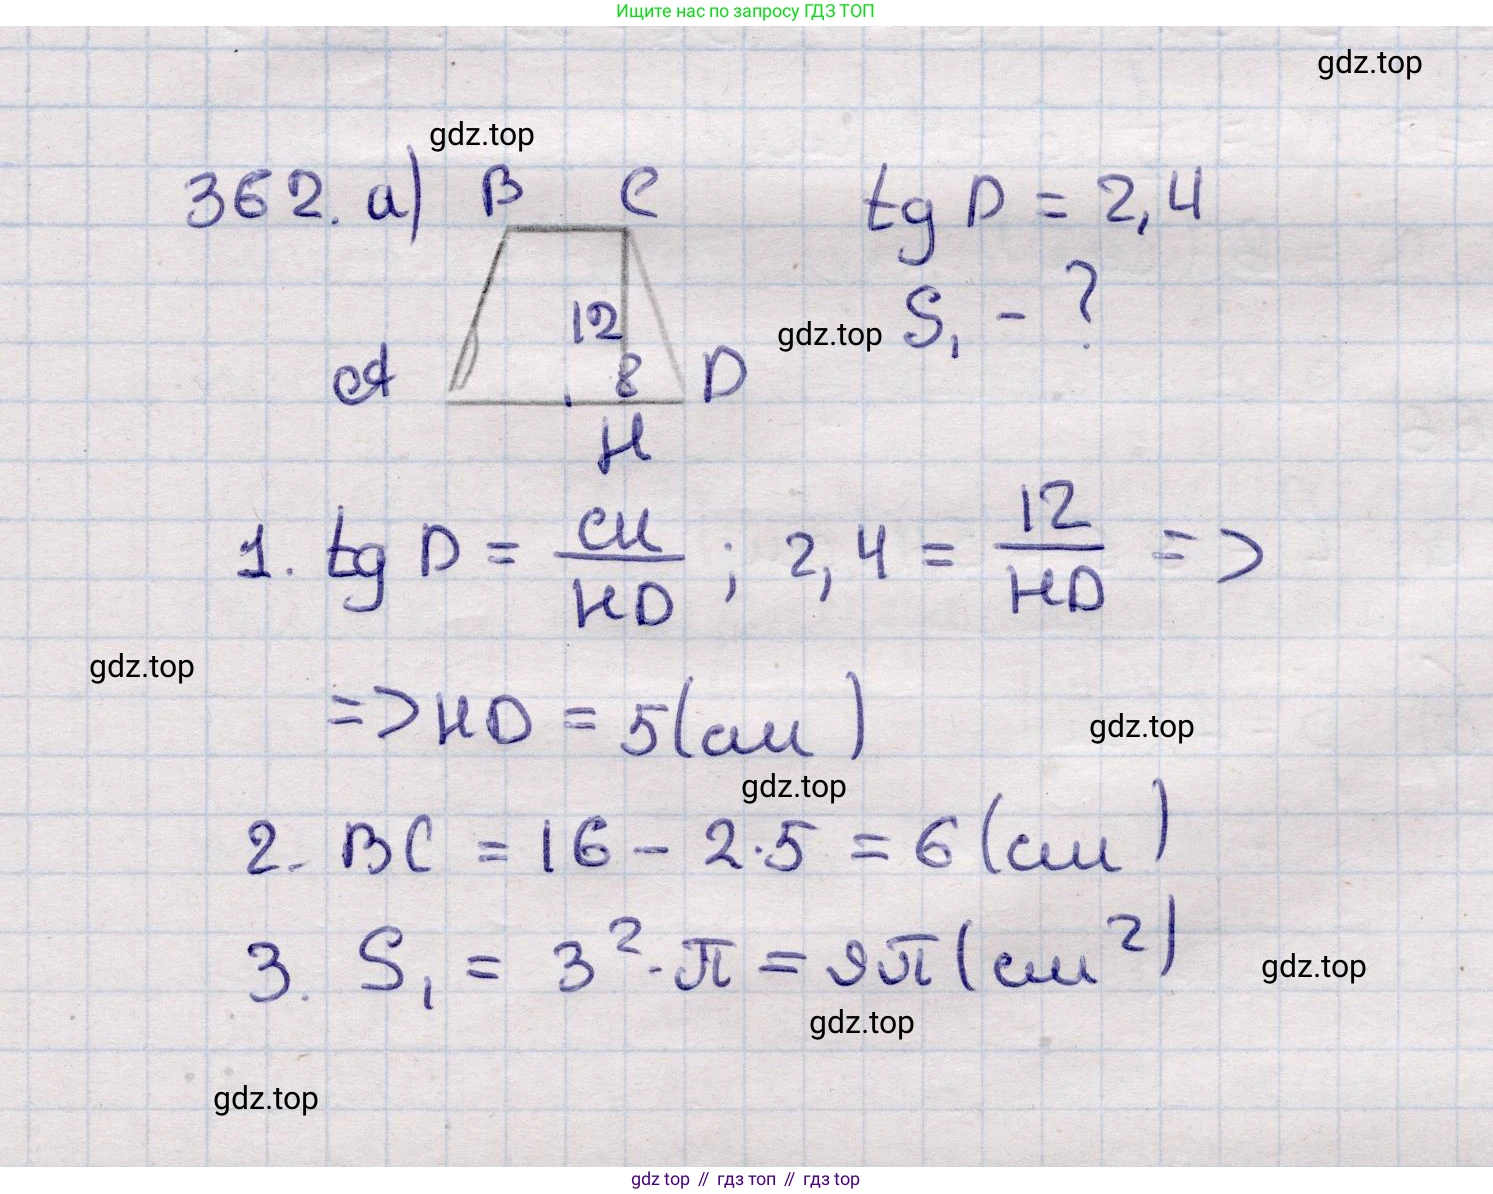 Ищите нас по запросу ГДЗ ТОП
gdz.top
gdz.top
362. а) B C tg D = 2,4
12 gdz.top S₁ - ?
A 8 D
H
1. tg D = CH/HD ; 2,4 = 12/HD =>
gdz.top
=> HD = 5 (см)
gdz.top
gdz.top
2. BC = 16 - 2·5 = 6 (см)
3. S₁ = 3² · π = 9π (см²)
gdz.top
gdz.top
gdz.top
gdz top // гдз топ // гдз top